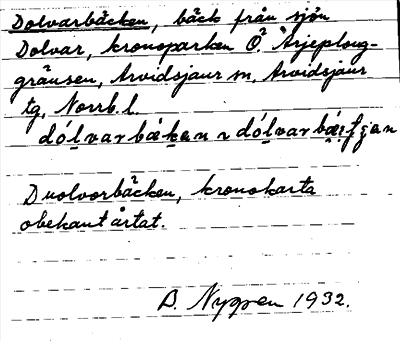 Dolvarbäcken, bäck från sjön
Dolvar, kronoparken Ö. Arjeploug-
gränsen, Arvidsjaur sn, Arvidsjaur
tg, Norrb. l.
dólvarbäkan ~ dólvarbäi
Duolvorbäcken, kronokarta
obekant årtal.
B. Nygren 1932.